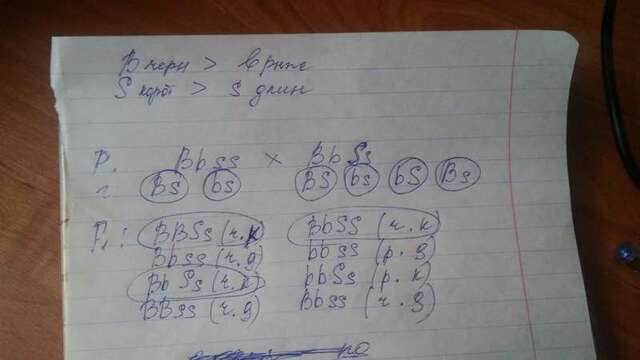 B черн > b рыж
S корот > s длин
P. Bbss × BbSs
г Bs bs BS bs bS Bs
F₁: BBSs (ч.к) BbSS (ч.к)
Bbss (ч.д) bbss (р.д)
BbSs (ч.к) bbSs (р.к)
BBss (ч.д) Bbss (ч.д)